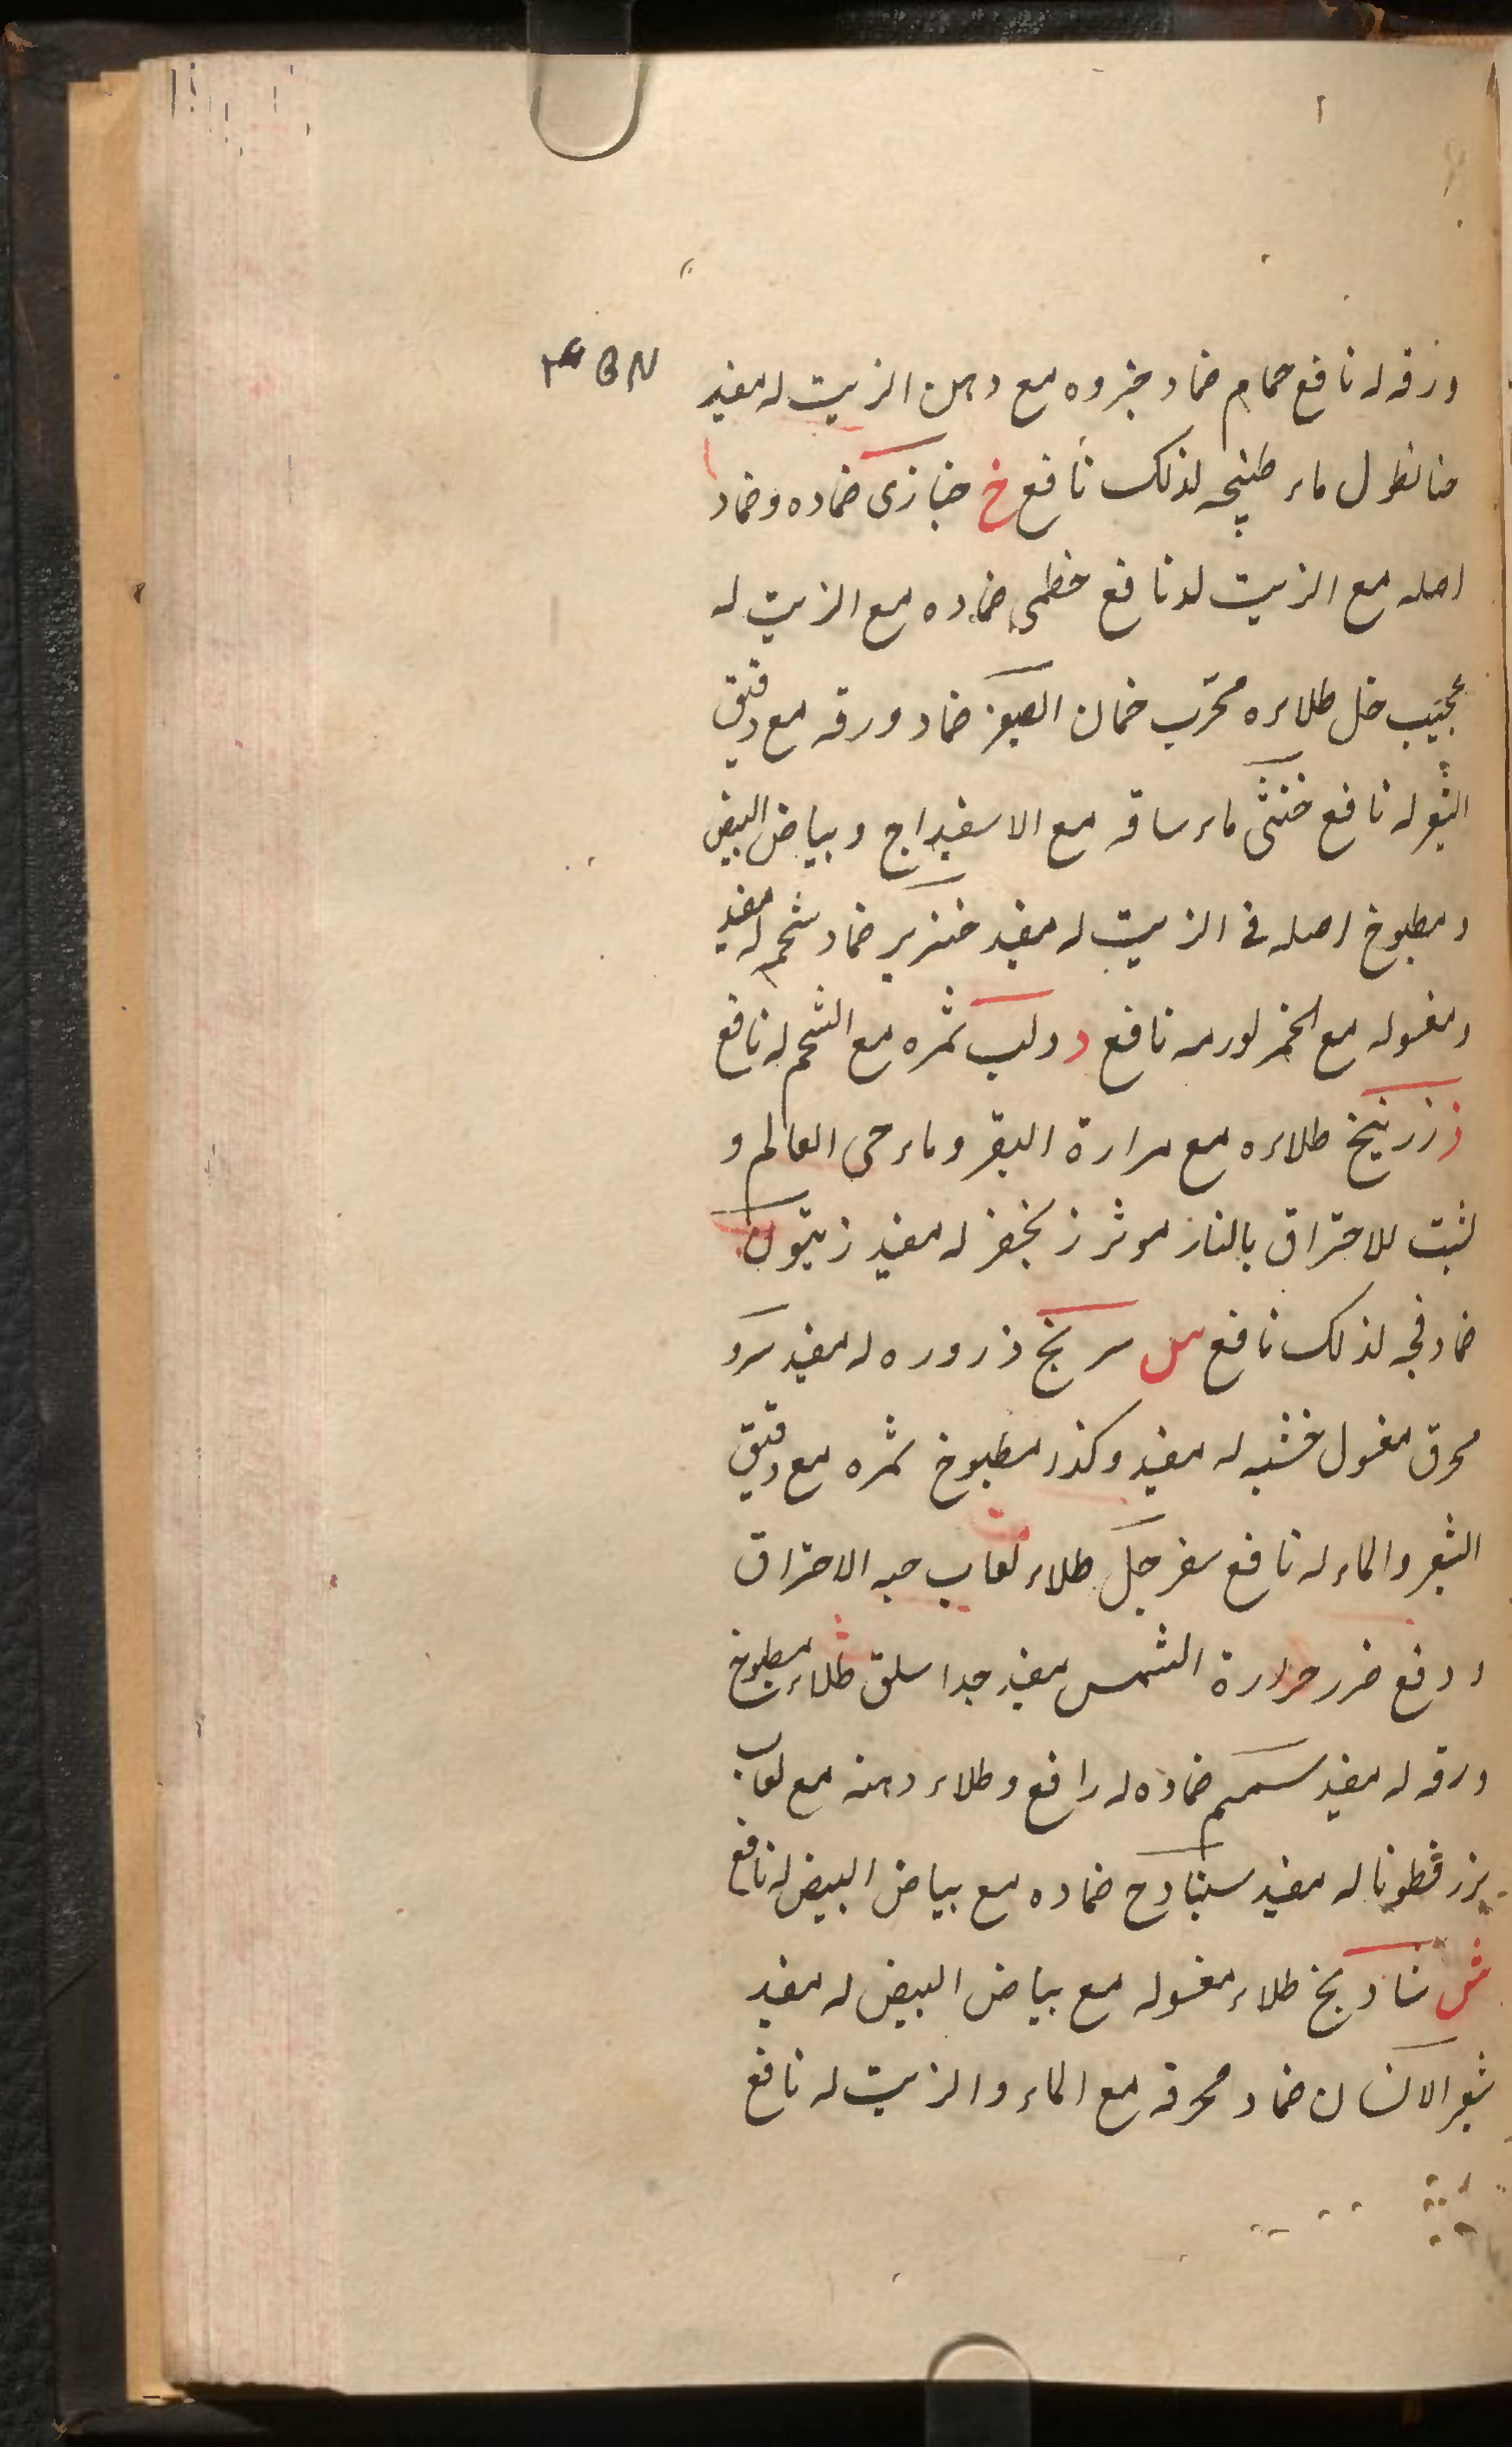 ورقه له نافع حمام ضماد خبزوه مع دهن الزيت له مفيد
حنا نطول ماء طبيخه لذلك نافع خ خبازى ضماده وضماد
اصله مع الزيت له نافع خطمى ضماده مع الزيت له
عجيب خل طلاءه مجرب خمان الصغير ضماد ورقه مع دقيق
الشعير له نافع خنثى ماء ساقه مع الاسفيداج وبياض البيض
ومطبوخ اصله فى الزيت له مفيد خنزير ضماد شحمه له مفيد
ومغسوله مع الخمر لورمه نافع د دلب ثمره مع الشحم له نافع
ز زرنيخ طلاءه مع مرارة البقر وماء حى العالم و
لشبت للاحتراق بالنار موثر زنجفر له مفيد زيتون
ضماد فجه لذلك نافع س سرنج ذروره له مفيد سرو
محرق مغسول خشبه له مفيد وكذا مطبوخ ثمره مع دقيق
الشعير والماء له نافع سفرجل طلاء لعاب حبه الاحتراق
ودفع ضرر حرارة الشمس مفيد جدا سلق طلاء مطبوخ
ورقه له مفيد سمسم ضماده له رافع وطلاء دهنه مع لعاب
بزرقطونا له مفيد سنبادج ضماده مع بياض البيض له نافع
ش شادنج طلاء مغسوله مع بياض البيض له مفيد
شعر الانسان ضماد محرقه مع الماء والزيت له نافع